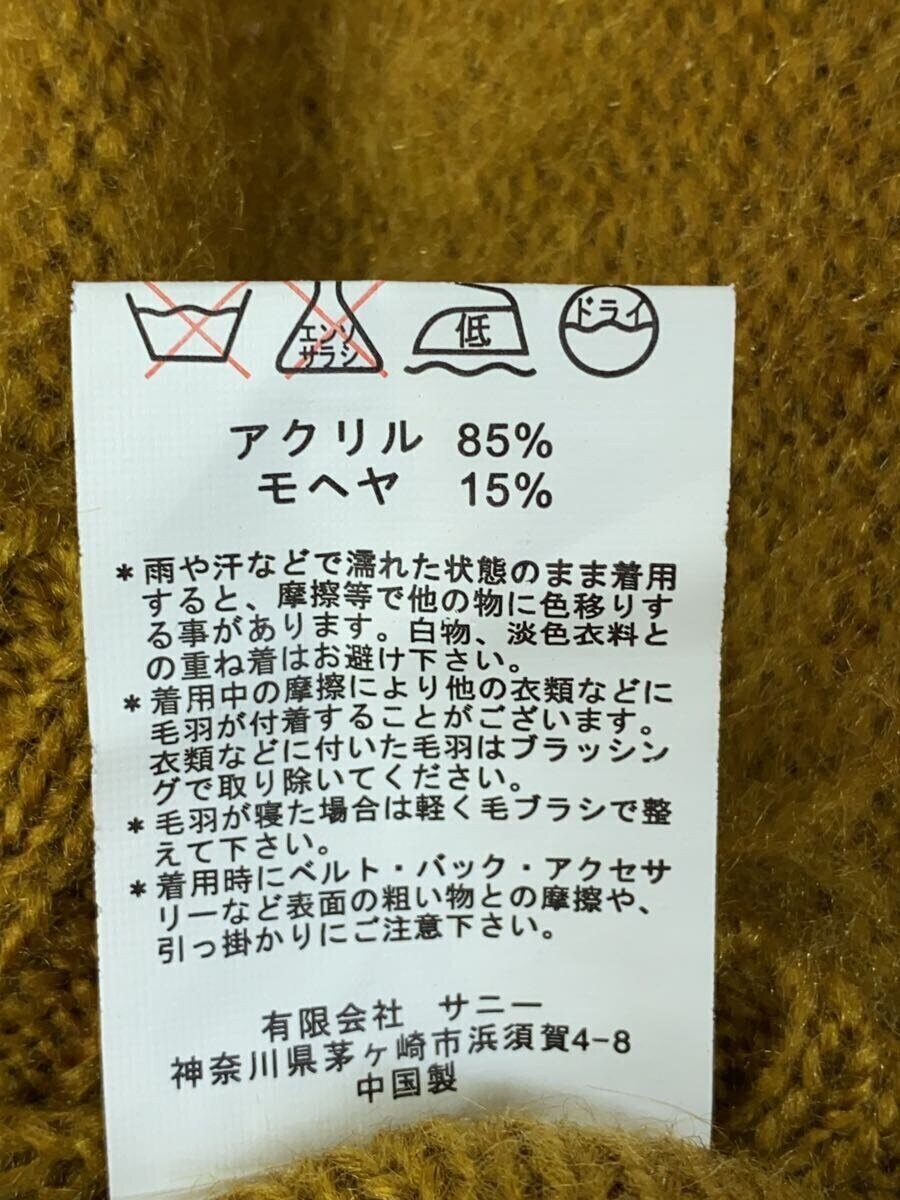 エンソ
サラシ
低
ドライ
アクリル 85%
モヘヤ 15%
* 雨や汗などで濡れた状態のまま着用
すると、摩擦等で他の物に色移りす
る事があります。白物、淡色衣料と
の重ね着はお避け下さい。
* 着用中の摩擦により他の衣類などに
毛羽が付着することがございます。
衣類などに付いた毛羽はブラッシン
グで取り除いてください。
* 毛羽が寝た場合は軽く毛ブラシで整
えて下さい。
* 着用時にベルト・バック・アクセサ
リーなど表面の粗い物との摩擦や、
引っ掛かりにご注意下さい。
有限会社 サニー
神奈川県茅ヶ崎市浜須賀4-8
中国製